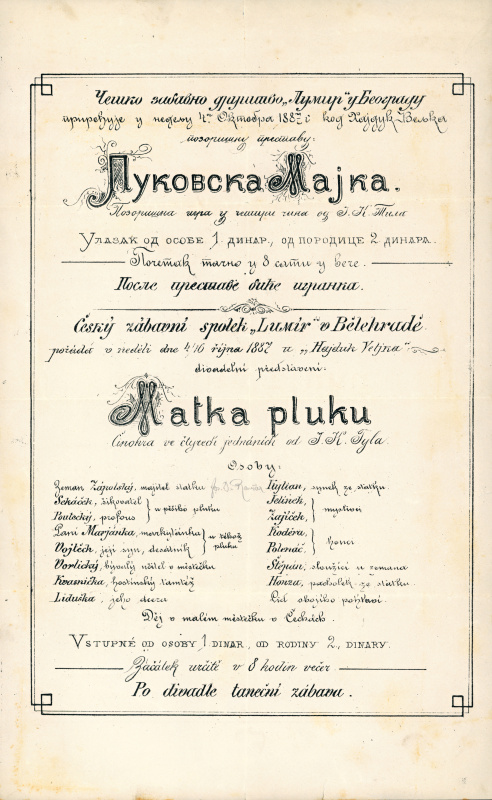 Чешко забавно друштво „Лумир“ у Београду
приређује у недељу 4ог Октобра 1887 г код Хајдук-Вељка
позоришну преставу:
Пуковска Мајка.
Позоришна игра у четири чина од Ј. К. Тила
Улазак од особе 1 динар., од породице 2 динара.
Почетак тачно у 8 сати у вече.
После преставе биће игранка.
Český zábavní spolek „Lumír“ v Bělehradě
pořádá v neděli dne 4/16 října 1887 u „Hajduk Veljka“
divadelní představení:
Matka pluku
Činohra ve čtyrech jednáních od J. K. Tyla.
Osoby:
Zeman Zápolský, majitel statku
Sekáček, šikovatel } u pěšího pluku
Poutecký, profous
Paní Marjánka, markytánka } u téhož pluku
Vojtěch, její syn, desátník
Vorlický, bývalý učitel v městečku
Kvasnička, hostinský tamtéž
Liduška, jeho dcera
Kylian, synek ze statku.
Jelínek, } myslivci
Zajíček,
Kudera, } honci
Polenáč,
Štěpán, sloužící u zemana
Honza, pacholek ze statku.
Lid obojího pohlaví.
Děj v malém městečku v Čechách.
Vstupné od osoby 1 dinar, od rodiny 2, dinary.
Začátek určitě v 8 hodin večer
Po divadle taneční zábava.